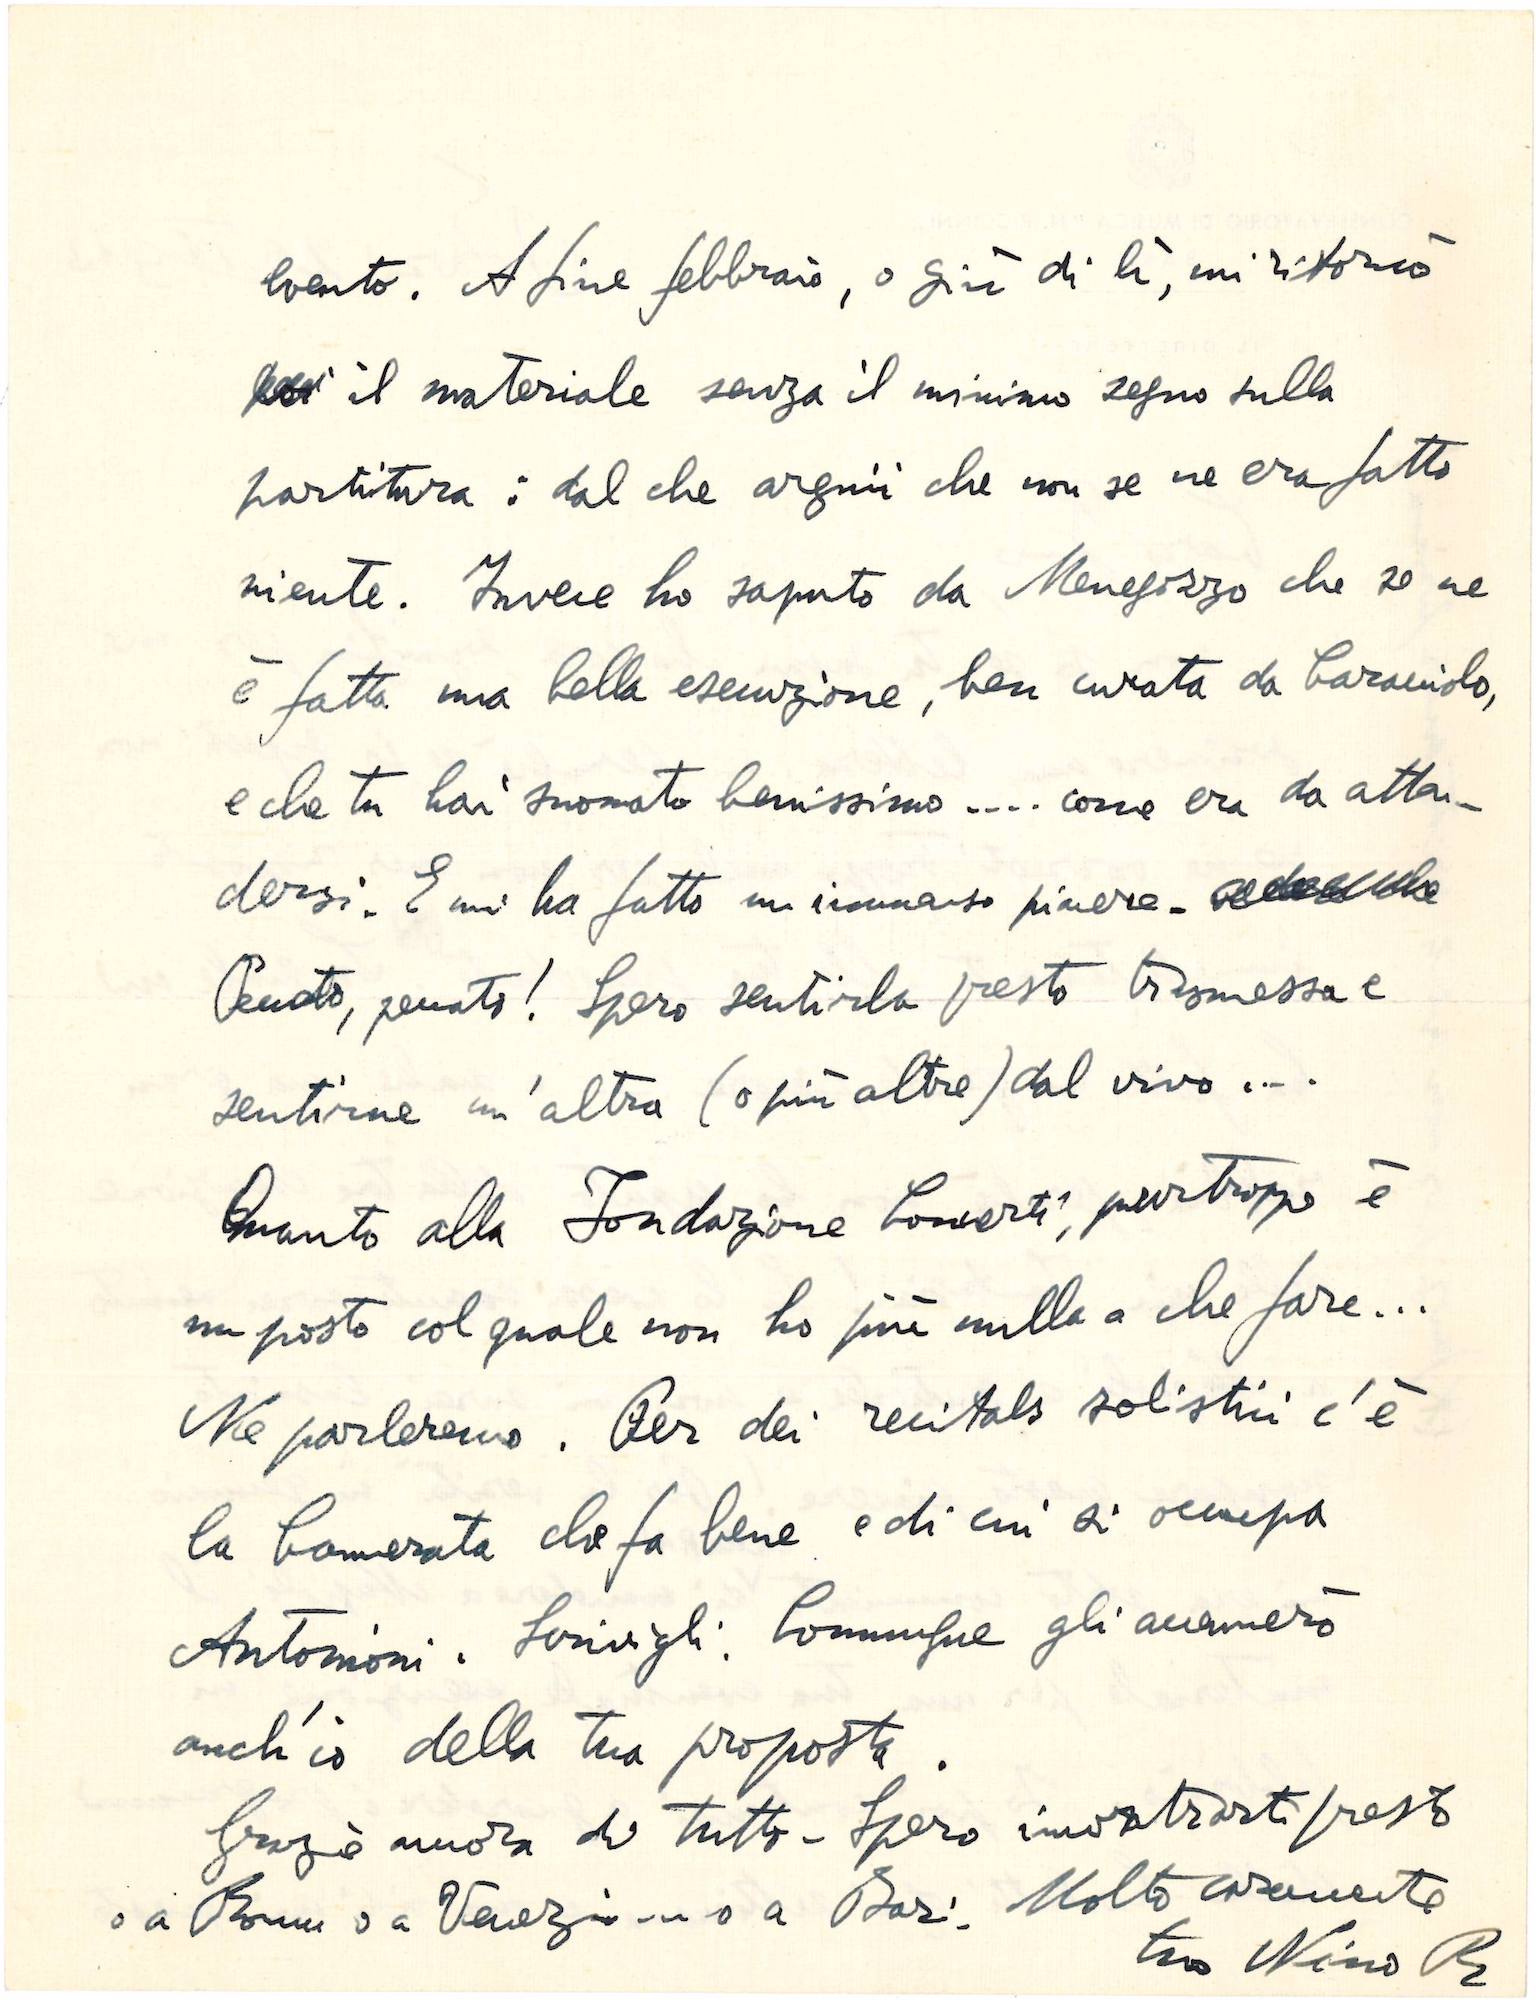 evento. A fine febbraio, o giù di lì, mi ritornò
il materiale senza il minimo segno sulla
partitura : dal che arguii che non se ne era fatto
niente. Invece ho saputo da Menegozzo che se ne
è fatta una bella esecuzione, ben curata da Caracciolo,
e che tu hai suonato benissimo .... come era da atten-
dersi. E mi ha fatto un immenso piacere -
Peccato, peccato! Spero sentirla presto trasmessa e
sentirne un'altra (o più altre) dal vivo ....
Quanto alla Fondazione Concerti, purtroppo è
un posto col quale non ho più nulla a che fare...
Ne parleremo. Per dei recitals solistici c'è
la Camerata che fa bene e di cui si occupa
Antonioni. Scrivigli. Comunque gli accennerò
anch'io della tua proposta.
Grazie ancora di tutto - Spero incontrarti presto
o a Roma o a Venezia .... o a Bari. Molto caramente
tuo Nino R